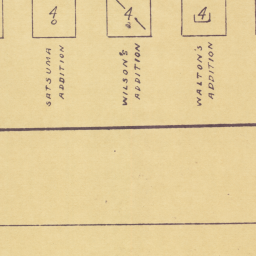 4
4
4
SATSUMA
ADDITION
WILSON'S
ADDITION
WALTON'S
ADDITION